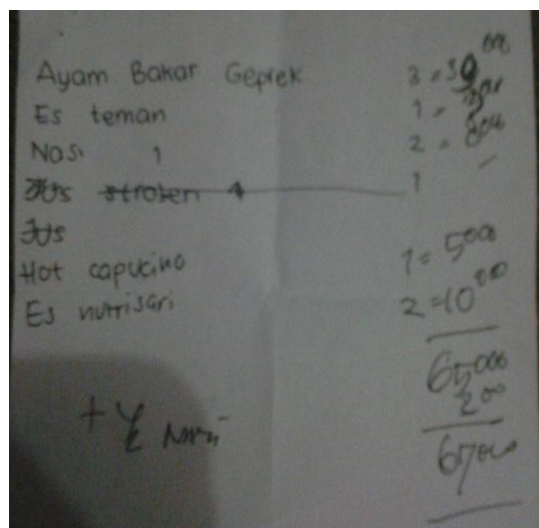 Ayam Bakar Geprek 3 = 39000
Es teman 1 = 3000
Nasi 1 2 = 8000
Jus stroberi 1 1 -
Jus
Hot capucino 1 = 5000
Es nutrisari 2 = 10000
65000
+ ½ 2000
67000